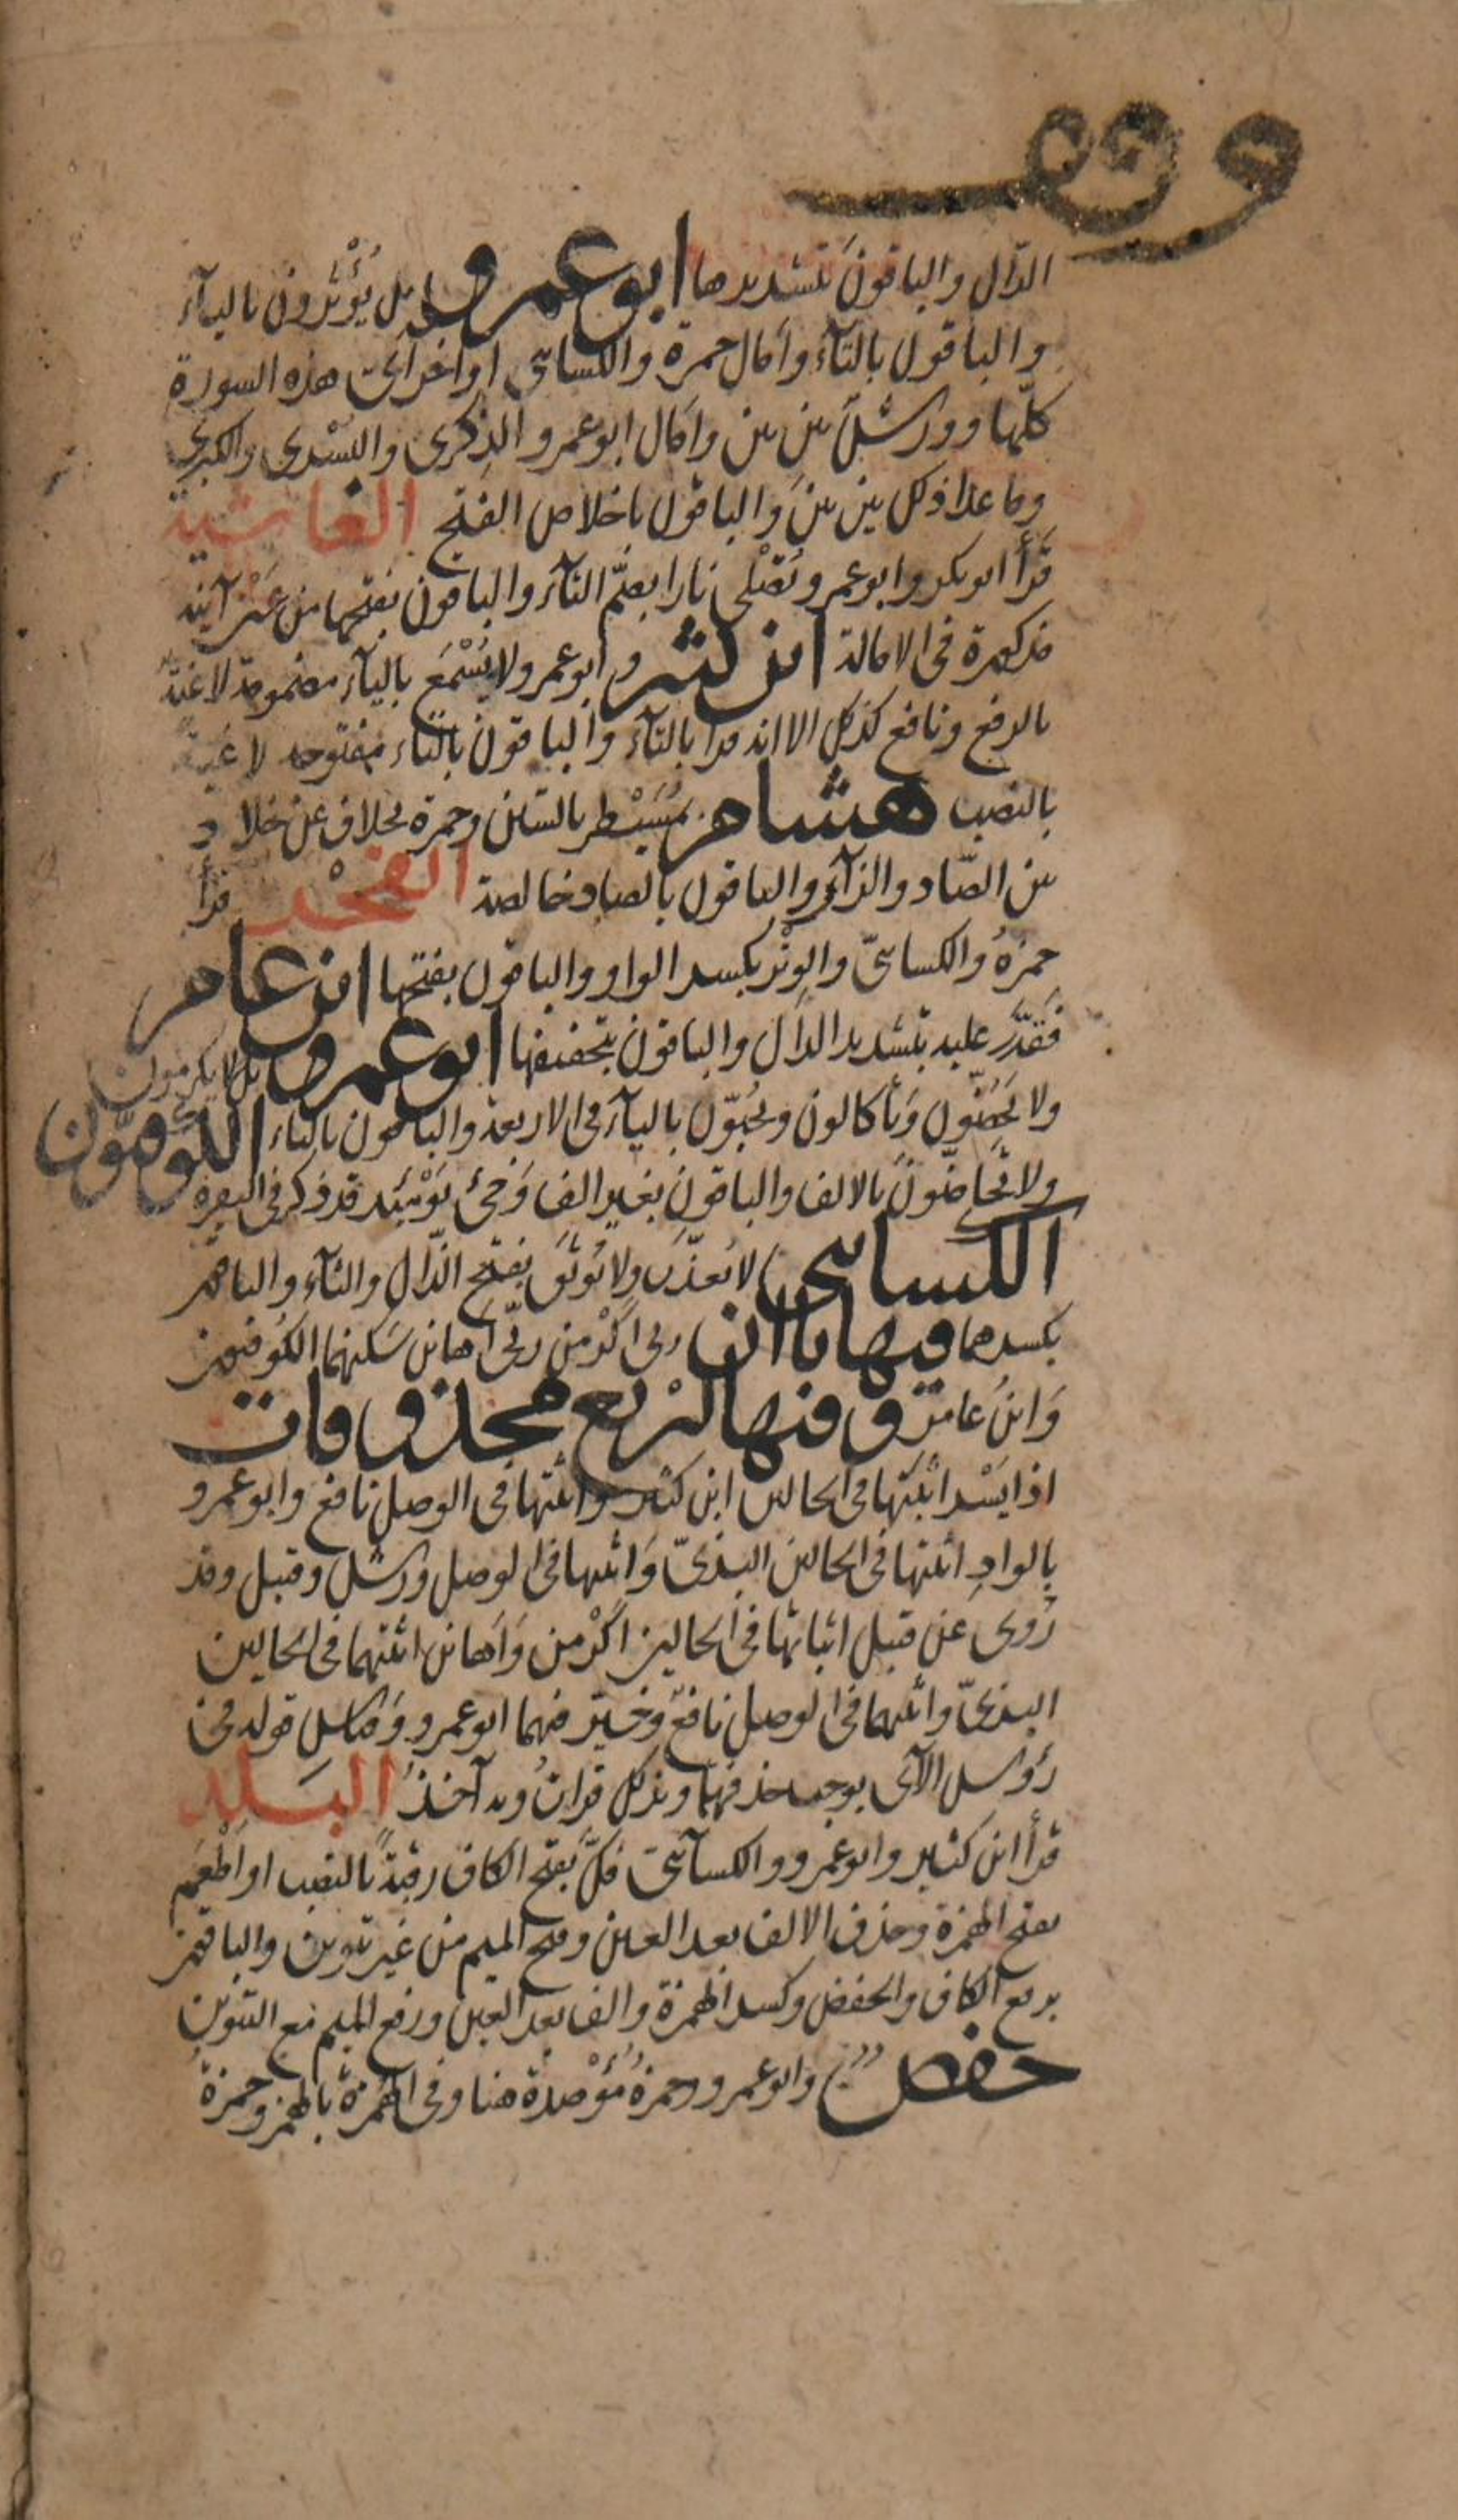 وقف
الدّال والباقون بتشديدها ابو عمرو بل يُؤْثرون باليآء
والباقون بالتآء وامال حمزة والكسائى اواخر آى هذه السورة
كلّها وورش بين بين وامال ابو عمرو الذكرى واليُسْرى والكبرى
وما عدا ذلك بين بين والباقون باخلاص الفتح الغاشية
قرأ ابو بكر وابو عمرو تُصْلى نارا بضمّ التآء والباقون بفتحها من عين آنية
مذكورة فى الامالة ابن كثير وابو عمرو لا يُسْمَع باليآء مضمومة لاغية
بالرفع ونافع كذلك الا انه قرا بالتآء والباقون بالتاء مفتوحه لاغية
بالنصب هشام بمُسَيْطر بالسّين وحمزة بخلاف عن خلاد
بين الصّاد والزآى والباقون بالصاد خالصة الفجر قرأ
حمزة والكسائىّ والوِتْر بكسر الواو والباقون بفتحها ابن عامر
فَقَدَّر عليه بتشديد الدال والباقون بتخفيفها ابو عمرو بل لا يكرمون
ولا يحضّون وياكلون ويحبّون باليآء فى الاربعة والباقون بالتاء الكوفيّون
ولا تحاضّون بالالف والباقون بغير الف وَجىء يَوْمَئذ قد ذكر فى البقرة
الكسائى لا يعذَّب ولا يُوثَق بفتح الذّال والثآء والباقون
بكسرهما فيها ياآن ربى اكْرمن ربّى اهانن سَكنهما الكوفيون
وَابنُ عامر وفيها اربع محذوفات
اذا يَسْر اثبتها فى الحالين ابن كثير واثبتها فى الوصل نافع وابو عمرو
بالوادِ اثبتها فى الحالين البزىّ وَاثبتها فى الوصل ورش وقنبل وقد
رُوى عن قنبل اثباتها فى الحالين اكْرمن وَاهانن اثبتهما فى الحالين
البزىّ واثبتهما فى الوصل نافع وخيّر فيهما ابو عمرو وقياس قوله فى
رؤس الآى يوجب حذفهما وبذلك قرات وبه آخذ البَلد
قرأ ابن كثير وابو عمرو والكسآئى فكّ بفتح الكاف رقبةً بالنصب او اَطْعَمَ
بفتح الهمزة وحذف الالف بعد العين وفتح الميم من غير تنوين والباقون
برفع الكاف والخفض وكسر الهمزة والف بعد العين ورفع الميم مع التنوين
حفص وابو عمرو وحمزةُ مُؤْصدة هنا وفى الهُمَزة بالهمز وحمزة